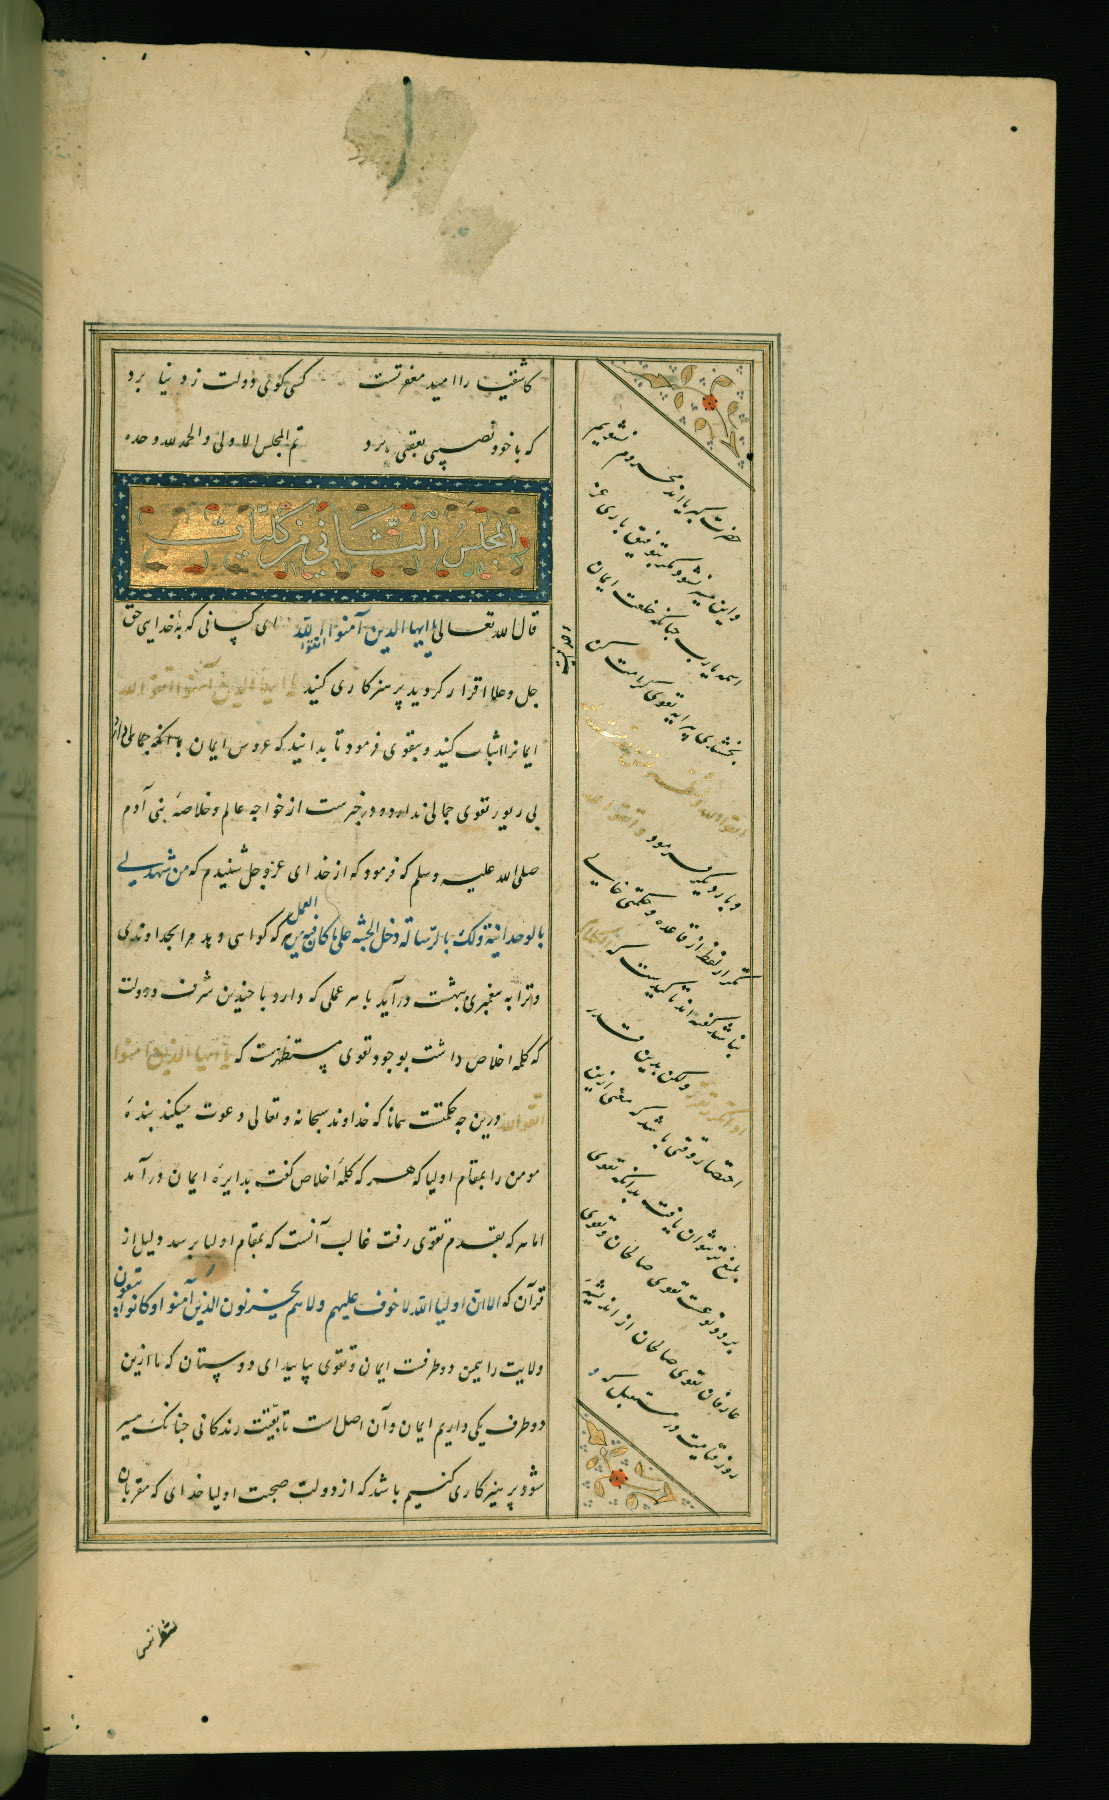 کاشقیا را امید مغفرتست
کسی گوی دولت ز دنیا برد
که با خود نصیبی بعقبی برد
تم المجلس الاولی والحمد لله وحده
المجلس الثانی من کلیات
قال الله تعالی یا ایها الذین آمنوا اتقوا الله ای کسانی که به خدای حق
جل وعلا اقرار کردید پرهیزکاری کنید یا ایها الذین آمنوا اتقوا الله
ایمانرا اثبات کنید و بتقوی فرمود تا بدانید که عروس ایمان با آنکه جمالی دارد
بی زیور تقوی جمالی ندارد و در خبرست از خواجه عالم و خلاصهٔ بنی آدم
صلی الله علیه وسلم که فرمود که از خدای عزوجل شنیدم که من شهد لی
بالوحدانیة ولک بالرسالة دخل الجنة علی ما کان فیه من العمل هر که گواهی دهد مرا بخداوندی
وترا به پیغمبری ببهشت درآید با هر عملی که دارد با چندین شرف ودولت
که کلمه اخلاص داشت بوجود تقوی مستظهرست که یا ایها الذین آمنوا
اتقوا الله درین چه حکمتست همانا که خداوند سبحانه وتعالی دعوت میکند بندهٔ
مومن را بمقام اولیا که هر که کلمهٔ اخلاص گفت بدایرهٔ ایمان در آمد
اما هر که بقدم تقوی رفت غالب آنست که بمقام اولیا برسد دلیل از
قرآن که الا ان اولیا الله لا خوف علیهم ولا هم یحزنون الذین آمنوا وکانوا یتقون
ولایت را یمن دو طرفست ایمان وتقوی بیایید ای دوستان که ما ازین
دو طرف یکی داریم ایمان وآن اصل است تا بقیت زندگانی چنانک میسر
شود پرهیزکاری کنیم باشد که از دولت صحبت اولیا خدای که مقربان
حضرت کبریااند محروم نشویم
واین میسر نشود مگر بتوفیق باری عز
اسمه یارب چنانکه خلعت ایمان
بخشیدی پیرایه تقوی کرامت کن
اتقوا الله ولتنظر نفس ما قدمت
واتقوا الله
وبار دیگر فرمود
تکرار لفظ از قاعده و حکمتی خالی
نباشد گفته اند تاکیدست که الکلام
اذا تکرر تقرر ولکن بدین قدر
اختصار وقتی باشد که معنی ازین
بلیغ تر نتوان یافت بدانکه تقوی
بر دو نوعست تقوی صالحان وتقوی
عارفان تقوی صالحان از اندیشهٔ
روز قیامت در مستقبل که و